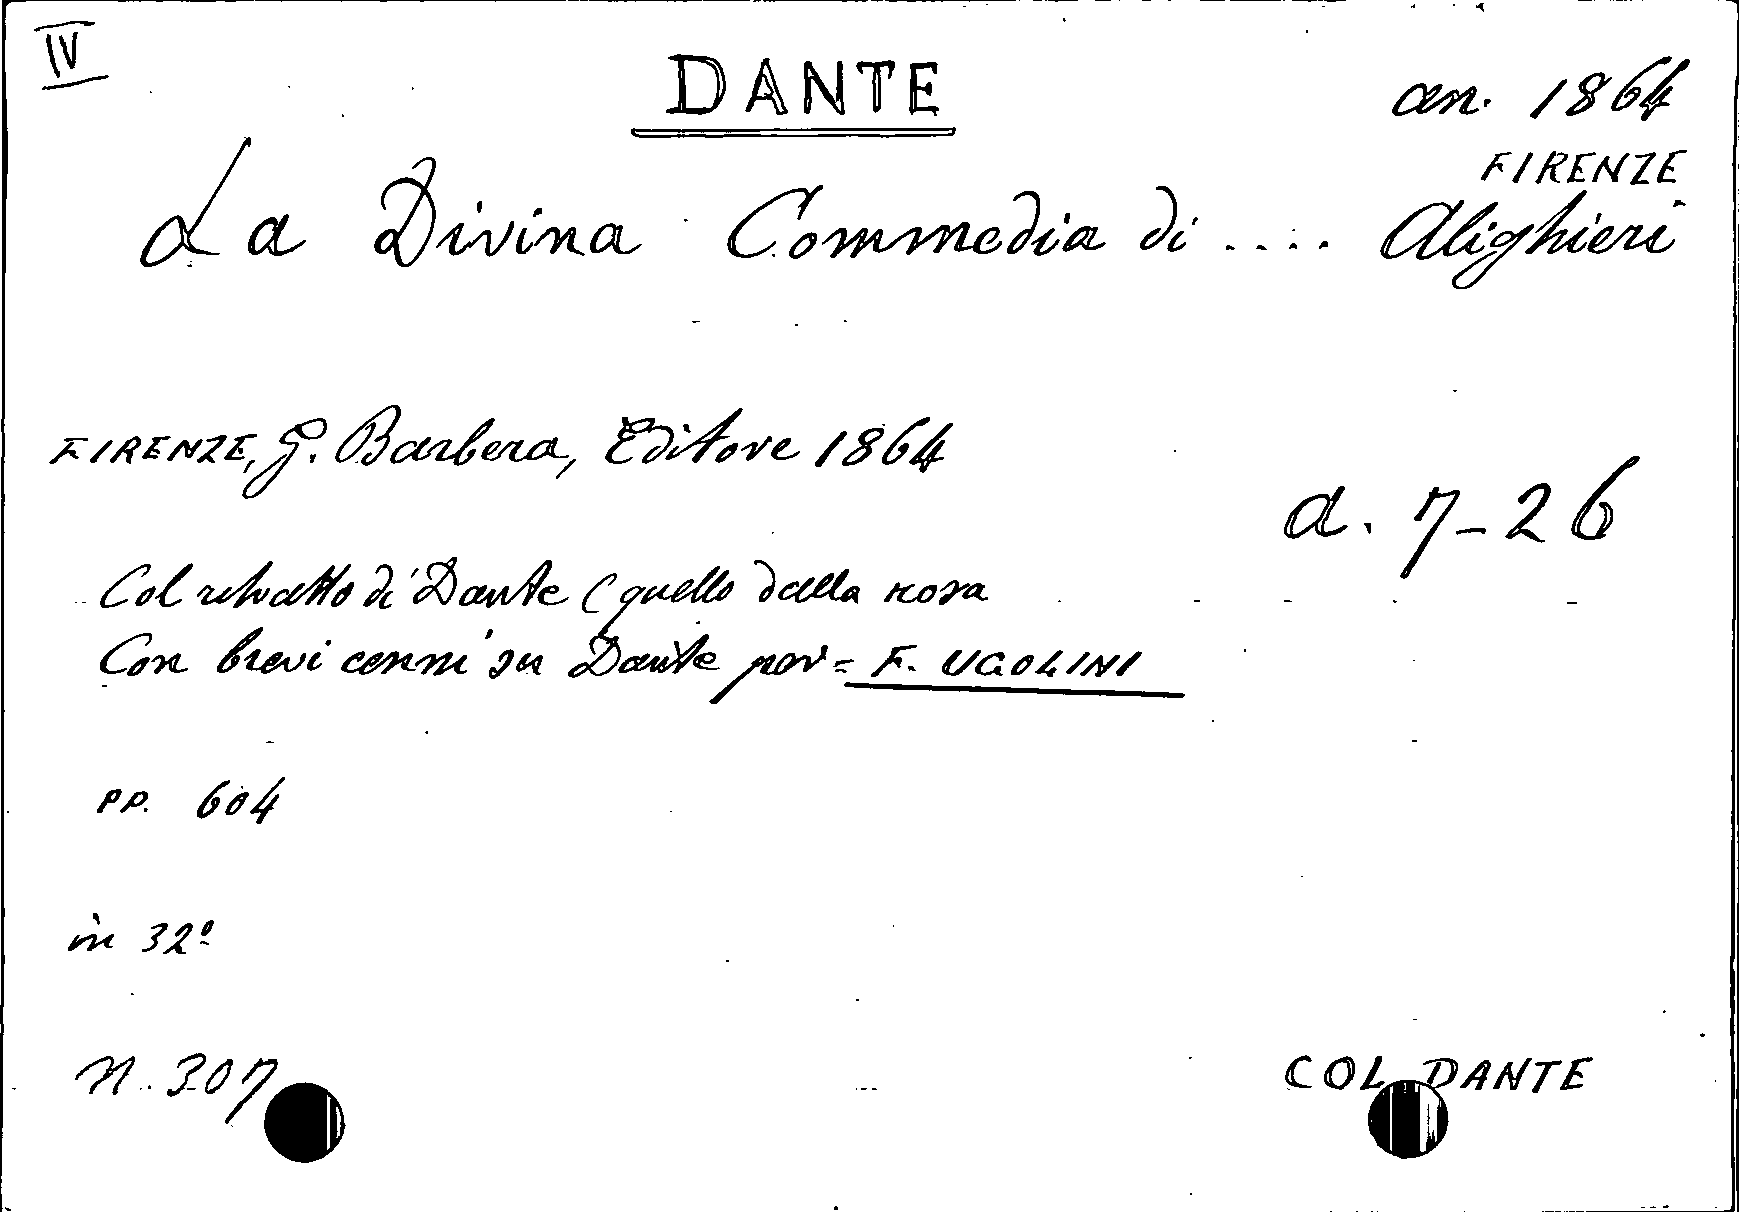 IV
DANTE
an. 1864
FIRENZE
La Divina Commedia di .... Alighieri
FIRENZE, G. Barbera, Editore 1864
a. 7-26
Col ritratto di Dante (quello dalla rosa
Con brevi cenni su Dante per = F. UGOLINI
PP. 604
in 32º
N. 307
COL DANTE